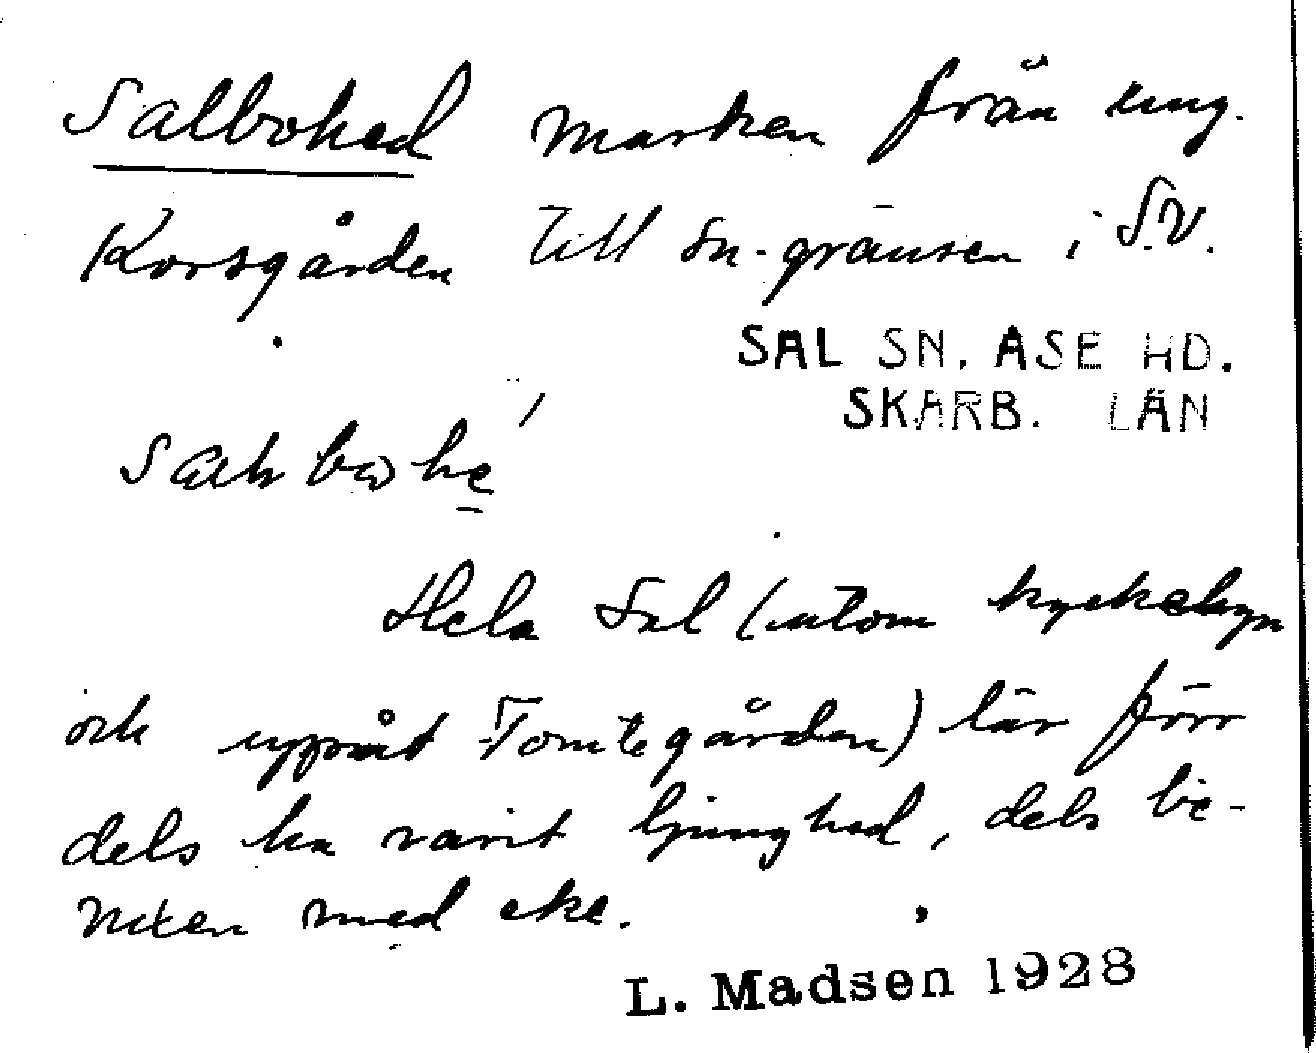 Salbohed marken från ung.
Korsgården till sn-gränsen i S.V.
SAL SN. ÅSE HD.
SKARB. LÄN
Hela Sal (utom kyrkebyn
och uppåt Tomtegården) lär förr
dels ha varit ljunghed, dels be-
vuxen med eke.
L. Madsen 1928